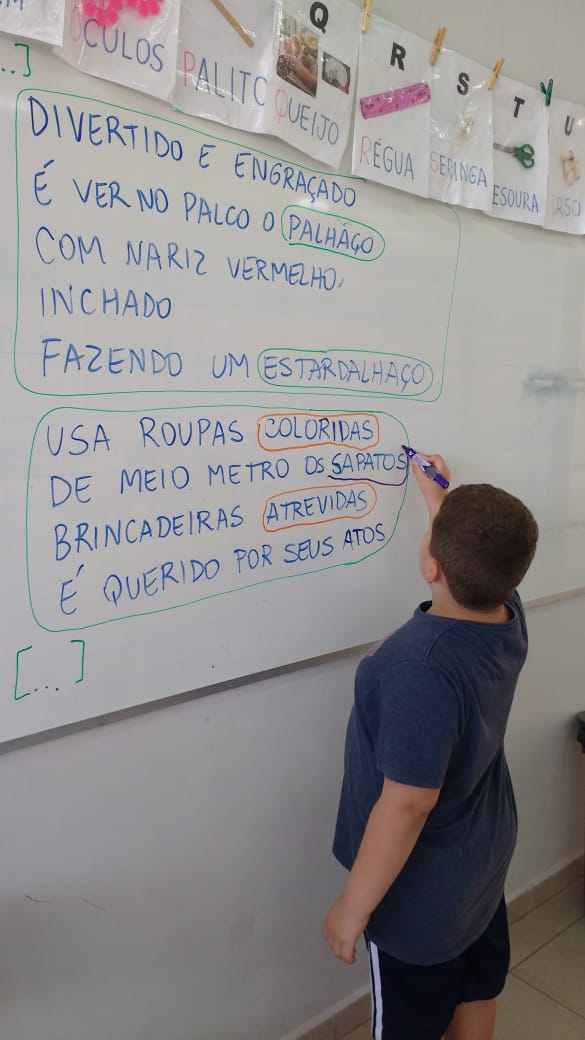 ÓCULOS
PALITO
Q
QUEIJO
R
RÉGUA
S
SERINGA
T
ESOURA
U
URSO
...]
DIVERTIDO E ENGRAÇADO
É VER NO PALCO O PALHAÇO
COM NARIZ VERMELHO,
INCHADO
FAZENDO UM ESTARDALHAÇO
USA ROUPAS COLORIDAS
DE MEIO METRO OS SAPATOS
BRINCADEIRAS ATREVIDAS
É QUERIDO POR SEUS ATOS
[...]